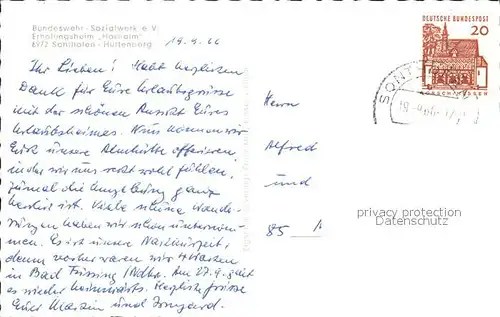 Bundeswehr-Sozialwerk e.V.
Erholungsheim „Hoslvalm"
8972 Sonthofen-Hüttenberg
19.9.66
Ihr Lieben! Habt herzlichen
Dank für Eure Urlaubsgrüsse
mit der schönen Ansicht Eures
Urlaubsheimes. Nun können wir
Euch unsere Almhütte offerieren,
in der wir uns recht wohl fühlen,
zumal die Umgebung ganz
herrlich ist. Viele schöne Wande-
rungen haben wir schon unternom-
men. Es ist unsere Nachkurzeit,
denn vorher waren wir 4 Wochen
in Bad Füssing /Ndbr. Am 27.9. geht
es wieder heimwärts. Herzliche Grüsse
Eure Martin und Irmgard.
DEUTSCHE BUNDESPOST
20
LORSCH/HESSEN
SONTH
Herrn
Alfred
und
85
privacy protection
Datenschutz